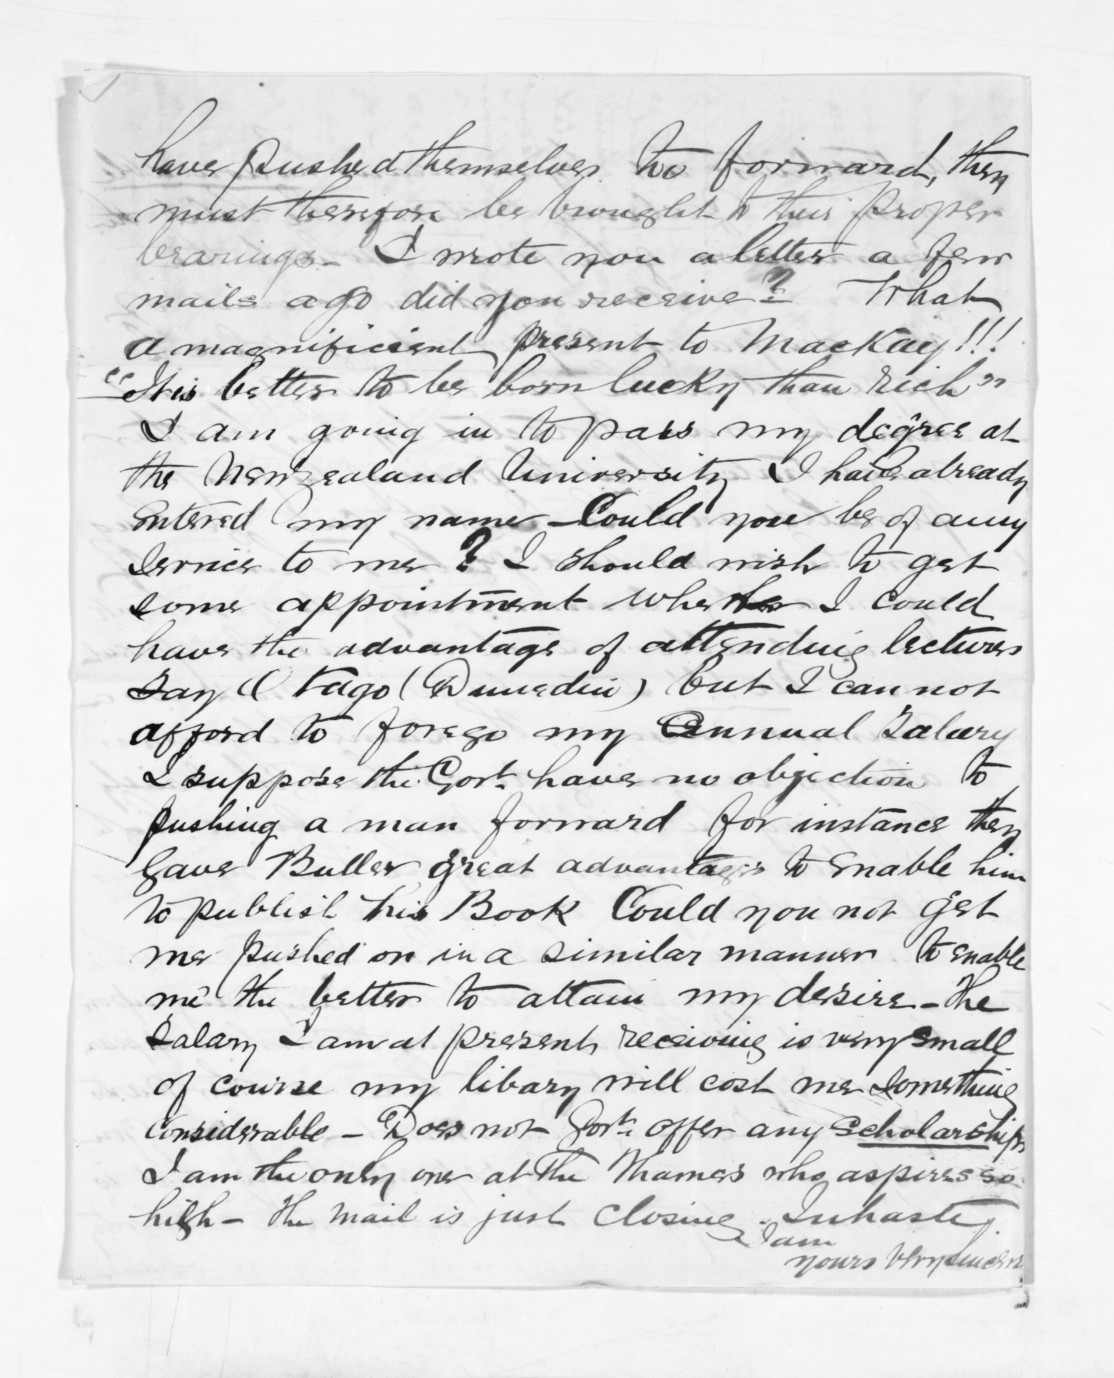 have pushed themselves too forward, they
must therefore be brought to their proper
bearings - I wrote you a letter a few
mails ago did you receive? What
a magnificient present to MacKay!!!
"It is better to be born lucky than rich"
I am going in to pass my degree at
the New Zealand University I have already
entered my name - Could you be of any
service to me? I should wish to get
some appointment where I could
have the advantage of attending lectures
Say Otago (Dunedin) but I can not
afford to forego my annual Salary
I suppose the Govt. have no objection to
pushing a man forward for instance they
gave Buller great advantages to enable him
to publish his Book Could you not get
me pushed on in a similar manner to enable
me the better to attain my desire - The
Salary I am at present receiving is very small
of course my library will cost me something
considerable - Does not Govt. offer any scholarships
I am the only one at the Thames who aspires so
high - The Mail is just closing. In haste,
I am
yours very sincere